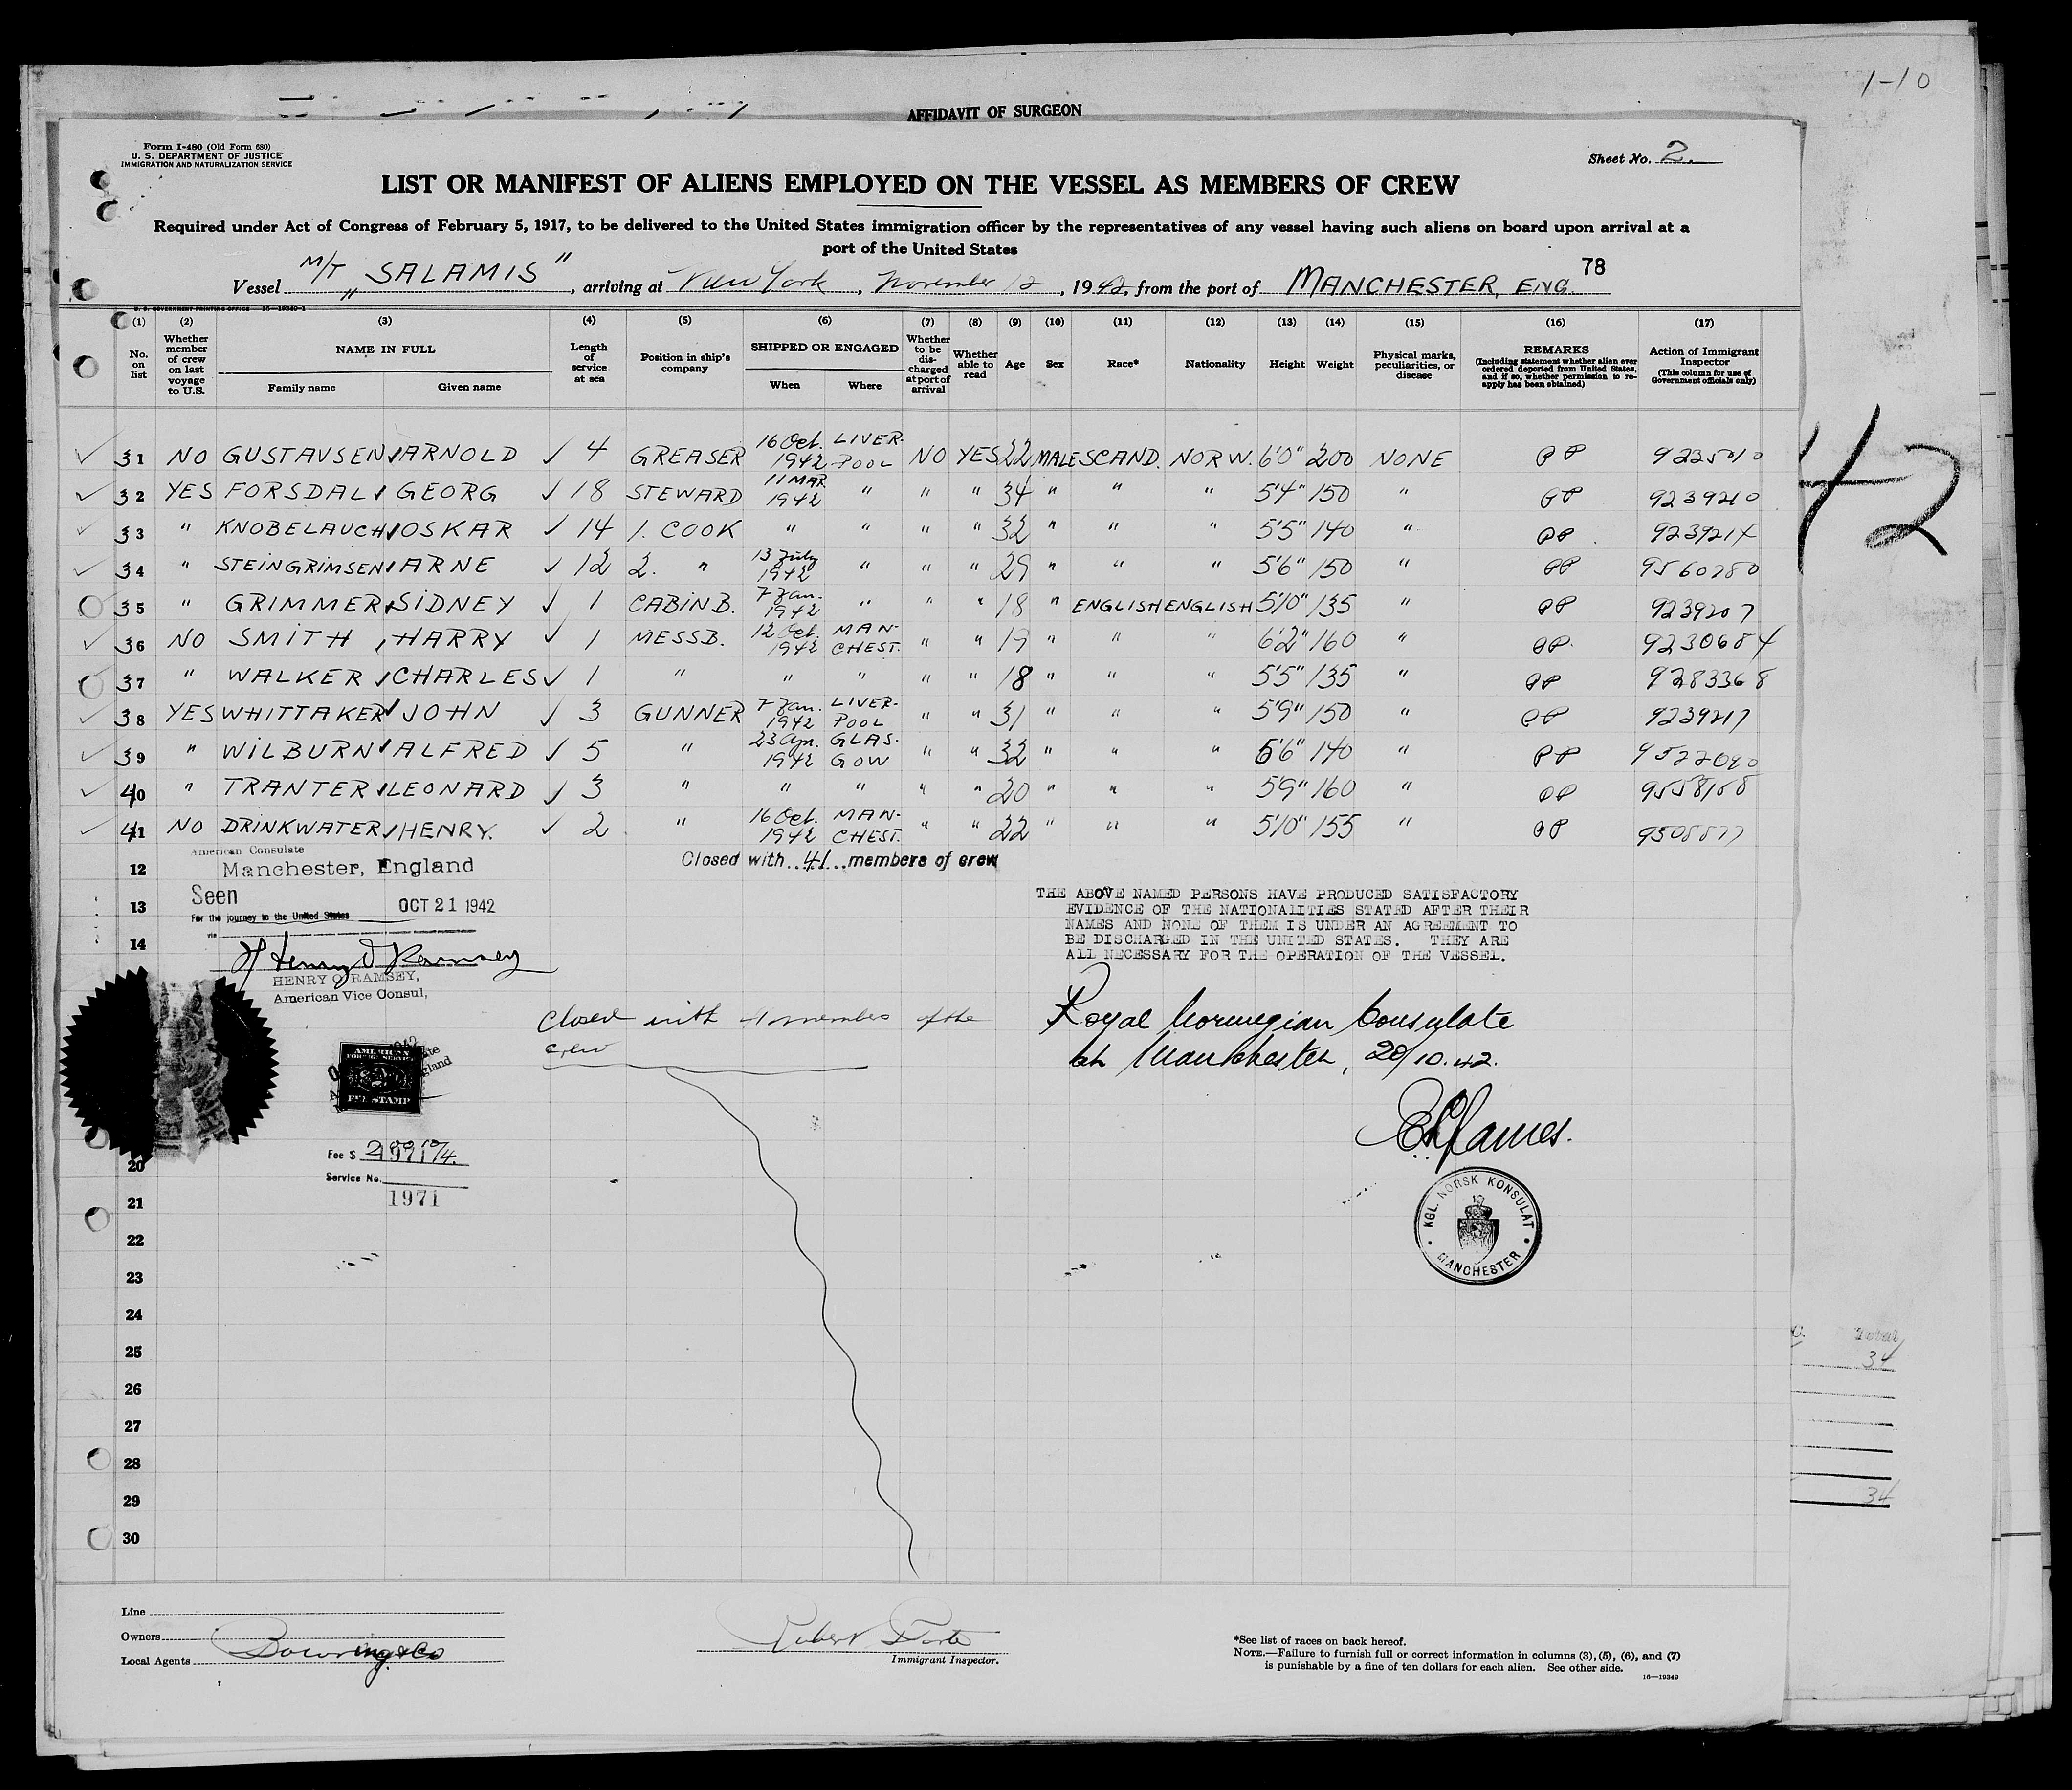 1-10
AFFIDAVIT OF SURGEON
Form I-480 (Old Form 680)
U. S. DEPARTMENT OF JUSTICE
IMMIGRATION AND NATURALIZATION SERVICE
Sheet No. 2.
LIST OR MANIFEST OF ALIENS EMPLOYED ON THE VESSEL AS MEMBERS OF CREW
Required under Act of Congress of February 5, 1917, to be delivered to the United States immigration officer by the representatives of any vessel having such aliens on board upon arrival at a
port of the United States
78
Vessel M/T „SALAMIS", arriving at New York, November 12, 1942, from the port of MANCHESTER, ENG.
U. S. GOVERNMENT PRINTING OFFICE 16—19349-1
(1) (2) (3) (4) (5) (6) (7) (8) (9) (10) (11) (12) (13) (14) (15) (16) (17)
No. on list
Whether member of crew on last voyage to U.S.
NAME IN FULL
Family name Given name
Length of service at sea
Position in ship's company
SHIPPED OR ENGAGED
When Where
Whether to be discharged at port of arrival
Whether able to read
Age
Sex
Race*
Nationality
Height
Weight
Physical marks, peculiarities, or disease
REMARKS
(Including statement whether alien ever ordered deported from United States, and if so, whether permission to reapply has been obtained)
Action of Immigrant Inspector
(This column for use of Government officials only)
31 NO GUSTAVSEN, ARNOLD 4 GREASER 16 Oct. 1942 LIVERPOOL NO YES 22 MALE SCAND. NORW. 6'0" 200 NONE PP 9235010
32 YES FORSDAL, GEORG 18 STEWARD 11 MAR 1942 " " " 34 " " " 5'4" 150 " PP 9239210
33 " KNOBELAUCH, OSKAR 14 1. COOK " " " " 32 " " " 5'5" 140 " PP 9239214
34 " STEINGRIMSEN, ARNE 12 2. " 13 July 1942 " " " 29 " " " 5'6" 150 " PP 9560280
35 " GRIMMER, SIDNEY 1 CABIN B. 7 Jan. 1942 " " " 18 " ENGLISH ENGLISH 5'10" 135 " PP 9239207
36 NO SMITH, HARRY 1 MESSB. 12 Oct. 1942 MANCHEST. " " 19 " " " 6'2" 160 " PP. 9230684
37 " WALKER, CHARLES 1 " " " " " 18 " " " 5'5" 135 " PP 9283368
38 YES WHITTAKER, JOHN 3 GUNNER 7 Jan. 1942 LIVERPOOL " " 31 " " " 5'9" 150 " PP 9239217
39 " WILBURN, ALFRED 5 " 23 Apr. 1942 GLASGOW " " 32 " " " 5'6" 140 " PP 9522090
40 " TRANTER, LEONARD 3 " " " " " 20 " " " 5'9" 160 " PP 9558158
41 NO DRINKWATER, HENRY. 2 " 16 Oct. 1942 MANCHEST. " " 22 " " " 5'10" 155 " PP 9508877
42
American Consulate
Manchester, England
Closed with 41 members of crew
12
Seen
13
For the journey to the United States
OCT 21 1942
via
14
Henry O Ramsey
HENRY O. RAMSEY,
American Vice Consul,
THE ABOVE NAMED PERSONS HAVE PRODUCED SATISFACTORY
EVIDENCE OF THE NATIONALITIES STATED AFTER THEIR
NAMES AND NONE OF THEM IS UNDER AN AGREEMENT TO
BE DISCHARGED IN THE UNITED STATES. THEY ARE
ALL NECESSARY FOR THE OPERATION OF THE VESSEL.
Closed with 41 members of the
crew
Royal Norwegian Consulate
at Manchester, 20/10.42.
AMERICAN
FOREIGN SERVICE
FEE STAMP
Fee $
Service No.
1971
KGL. NORSK KONSULAT
MANCHESTER
20
21
22
23
24
25
26
27
28
29
30
Total
34
34
Line
Owners
Local Agents Bowring & Co
Immigrant Inspector.
*See list of races on back hereof.
NOTE.—Failure to furnish full or correct information in columns (3), (5), (6), and (7)
is punishable by a fine of ten dollars for each alien. See other side.
16—19349